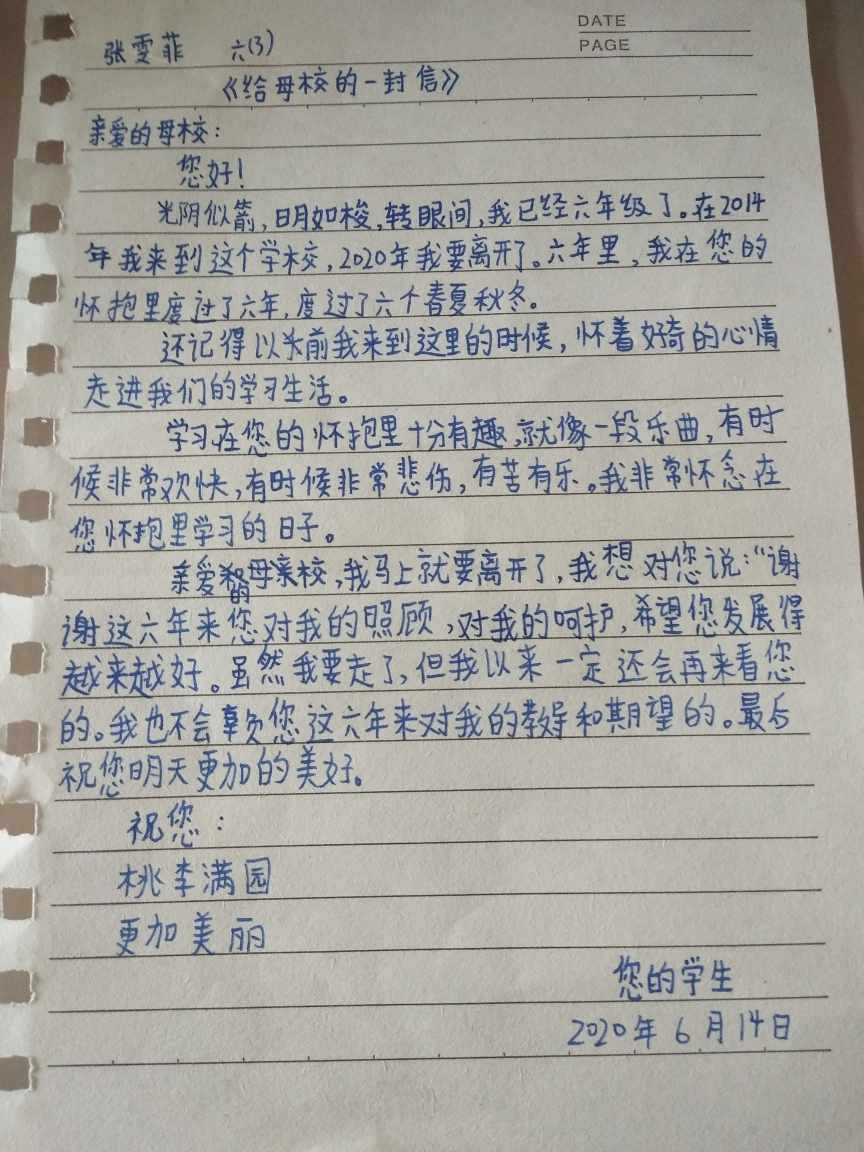 DATE
PAGE
张雯菲 六(3)
《给母校的一封信》
亲爱的母校：
您好！
光阴似箭，明如梭，转眼间，我已经六年级了。在2014
年我来到这个学校，2020年我要离开了。六年里，我在您的
怀抱里度过了六年，度过了六个春夏秋冬。
还记得以前我来到这里的时候，怀着好奇的心情
走进我们的学习生活。
学习在您的怀抱里十分有趣，就像一段乐曲，有时
候非常欢快，有时候非常悲伤，有苦有乐。我非常怀念在
您怀抱里学习的日子。
亲爱的母亲校，我马上就要离开了，我想对您说：“谢
谢这六年来您对我的照顾，对我的呵护，希望您发展得
越来越好。虽然我要走了，但我以来一定还会再来看您
的。我也不会辜负您这六年来对我的教导和期望的。最后
祝您明天更加的美好。
祝您：
桃李满园
更加美丽
您的学生
2020年6月14日